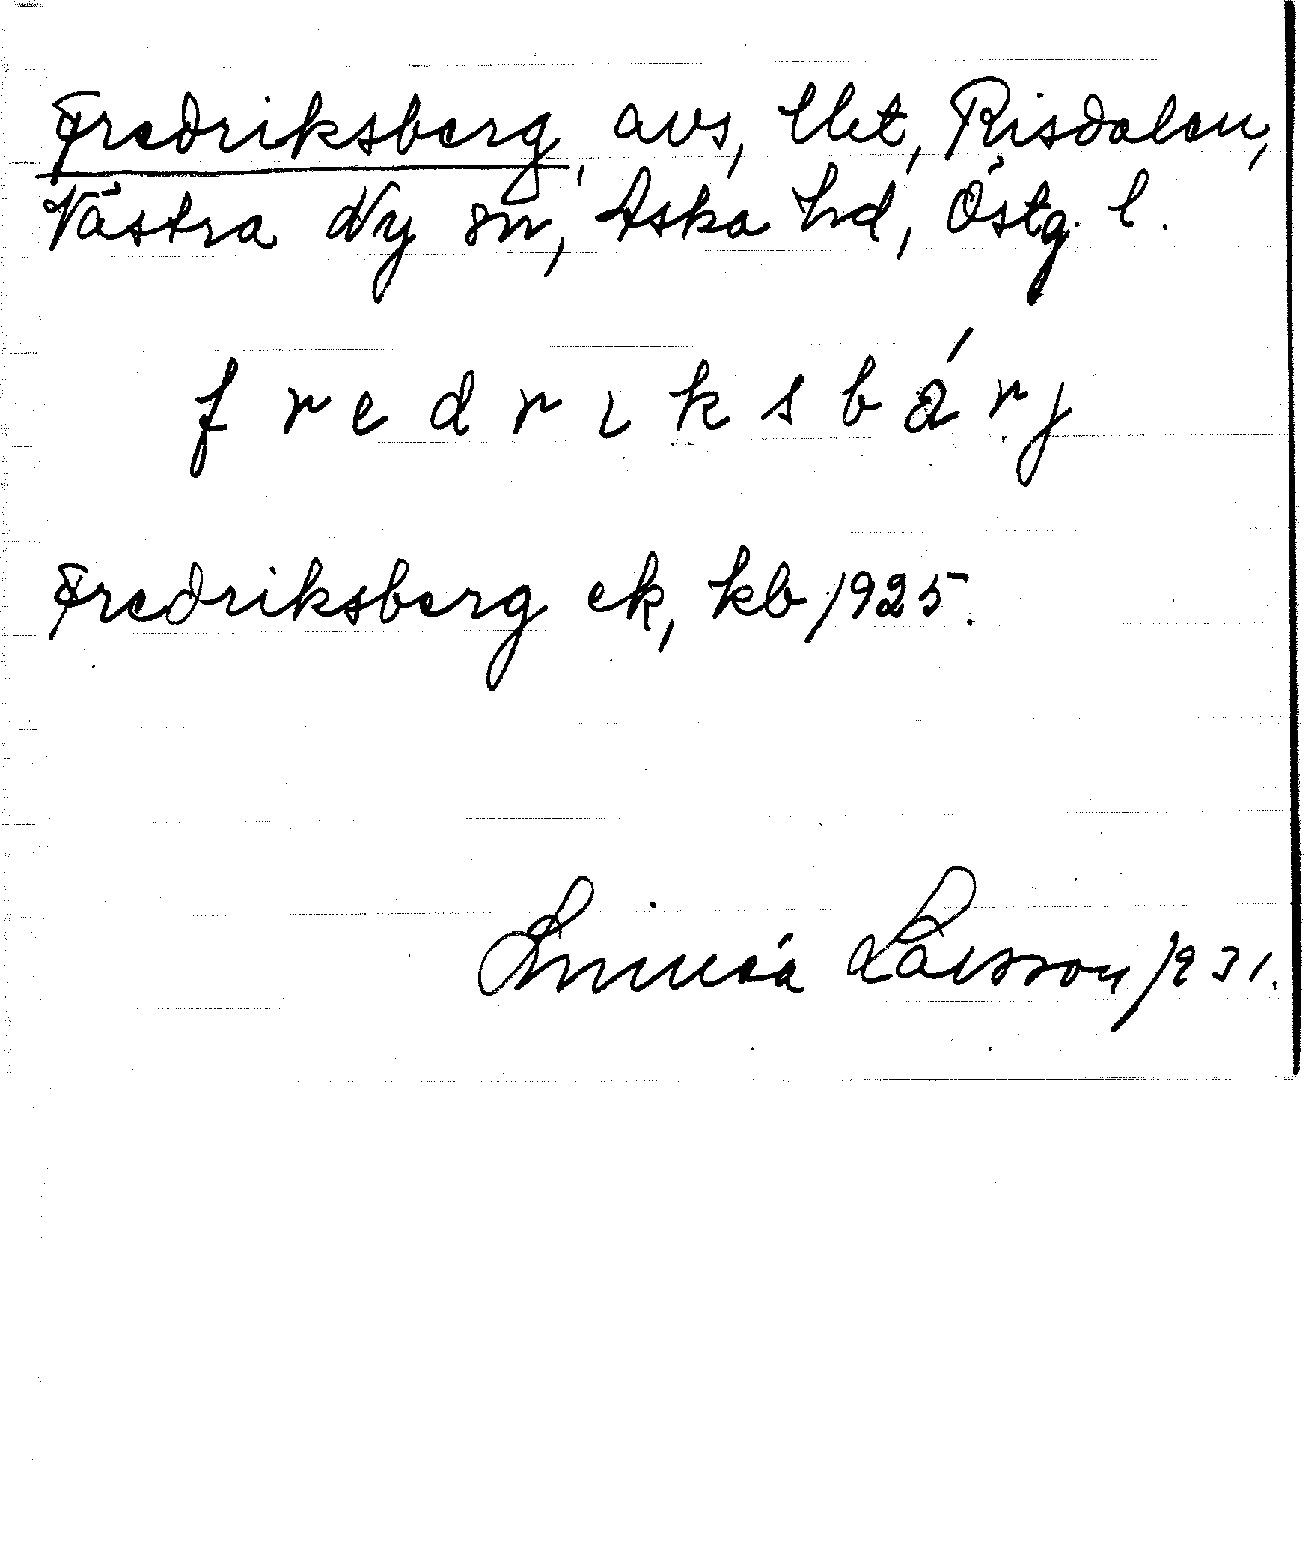 Fredriksberg, avs, lht, Risdalen,
Västra Ny sn, Aska hd, Östg. l.
fredrıksbárj
Fredriksberg ek, kb 1925.
Linnéa Larsson 1931.